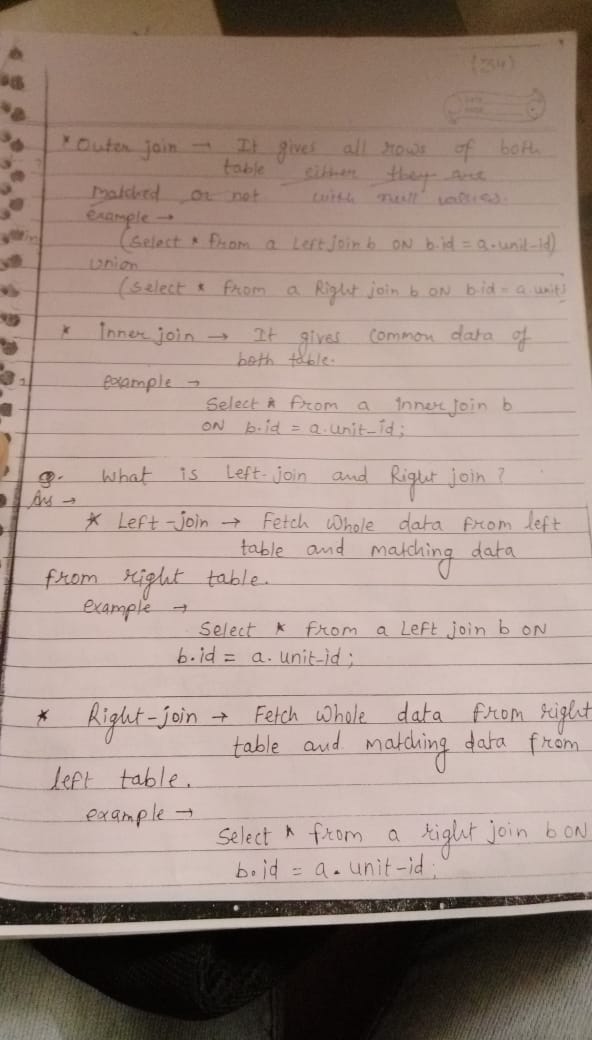 (34)
* Outer join → It gives all rows of both
table either they are
matched or not with null values.
example →
(Select * from a Left join b ON b.id = a.unit-id)
union
(Select * from a Right join b ON b.id = a.unit
* Inner join → It gives common data of
both table.
example →
Select * from a inner join b
ON b.id = a.unit_id;
Q. What is Left-join and Right join ?
Ans →
* Left-join → Fetch whole data from left
table and matching data
from right table.
example →
Select * from a Left join b ON
b.id = a.unit-id;
* Right-join → Fetch whole data from right
table and matching data from
left table.
example →
Select * from a right join b ON
b.id = a.unit-id;